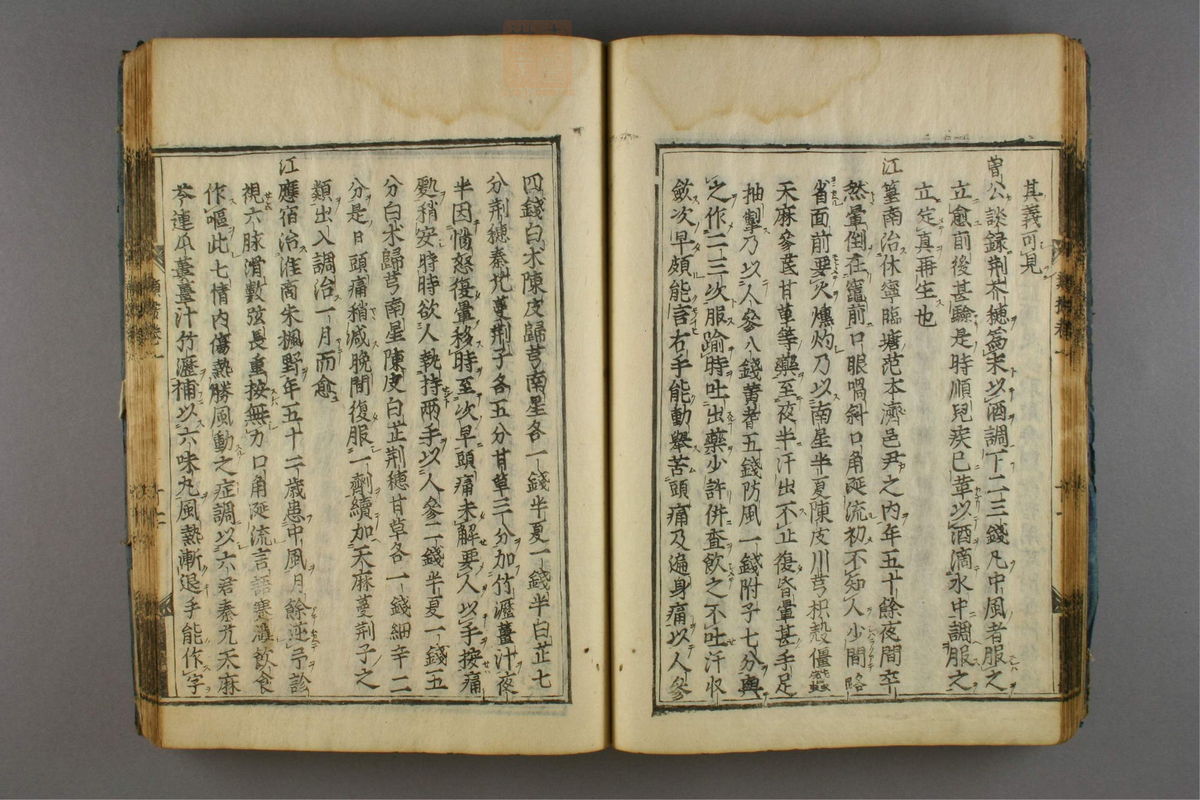 其義可見
曽公談録荆芥穂為末以酒調下二三錢凡中風者服之
立愈前後甚驗是時順兒疾已革以酒滴水中調服之
立定真再生也
江篁南治休寧臨塘范本濟邑尹之内年五十餘夜間卒
然暈倒在竈前口眼喎斜口角涎流初不知人少間略
省面前要火燻灼乃以南星半夏陳皮川芎枳殻僵蚕
天麻參芪甘草等藥至夜半汗出不止復昏暈甚手足
抽掣乃以人參八錢黄耆五錢防風一錢附子七分與
之作二三次服踰時吐出藥少許併查飲之不吐汗收
斂次早頗能言右手能動舉苦頭痛及遍身痛以人參
四錢白术陳皮歸芎南星各一錢半夏一錢半白芷七
分荆穂秦艽蔓荆子各五分甘草三分加竹瀝薑汁夜
半因惱怒復暈移時至次早頭痛未解要人以手按痛
處稍安時時欲人執持兩手以人參二錢半夏一錢五
分白术歸芎南星陳皮白芷荆穂甘草各一錢細辛二
分是日頭痛稍减晩間復服一劑續加天麻蔓荆子之
類出入調治一月而愈
江應宿治淮商朱楓野年五十二歳患中風月餘逆予診
視六脉滑數弦長重按無力口角涎流言語蹇澁飲食
作嘔此七情内傷熱勝風動之症調以六君秦艽天麻
芩連瓜蔞薑汁竹瀝補以六味丸風熱漸退手能作字